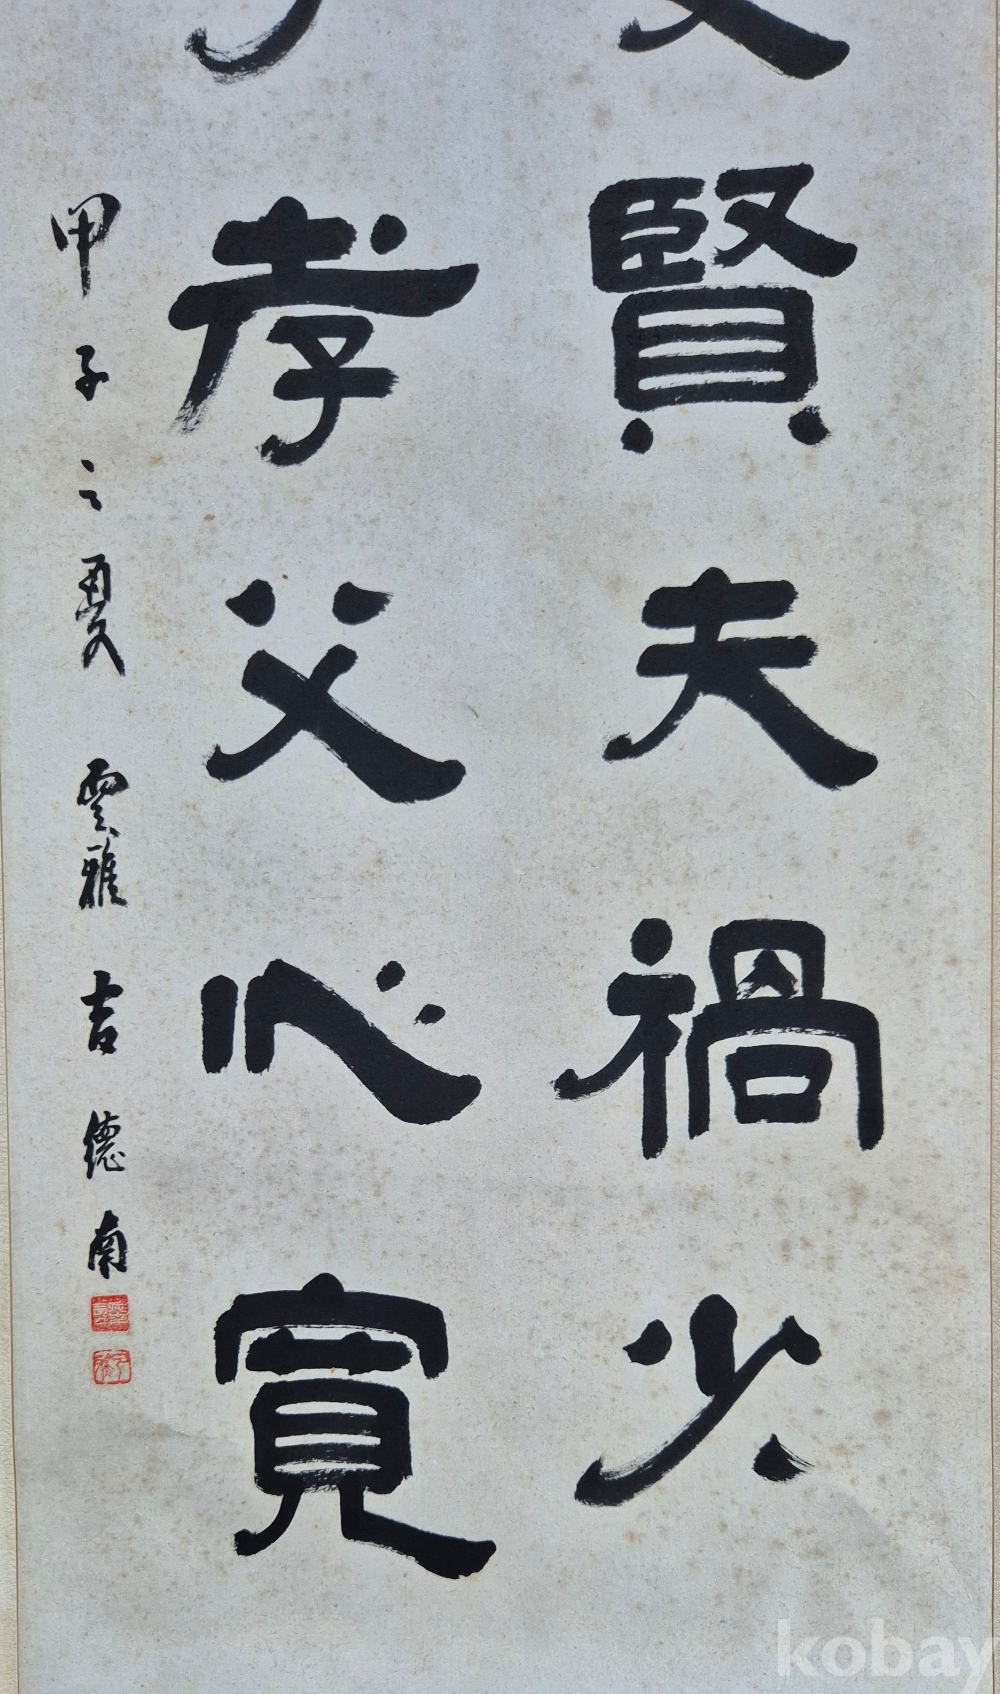 賢夫禍少
孝父心寬
甲子之夏 雲雅 吉德南
kobay